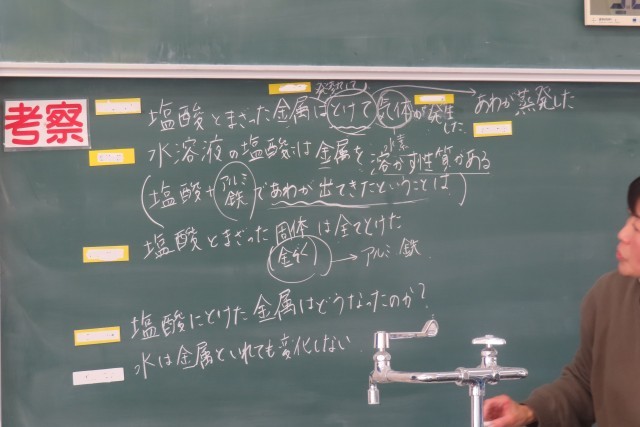 考察
塩酸とまざった金属はとけて気体が発生した
あわが蒸発した
水溶液の塩酸は金属を溶かす性質がある
水素
(塩酸+アルミ 鉄 であわが出てきたということは)
塩酸とまざった固体は全てとけた
(金ぞく) → アルミ 鉄
塩酸にとけた金属はどうなったのか?
水は金属といれても変化しない